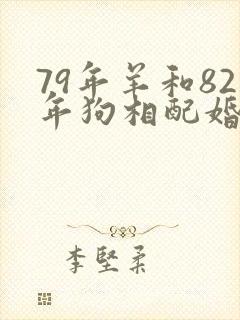 79年羊和82
年狗相配婚
李堅柔